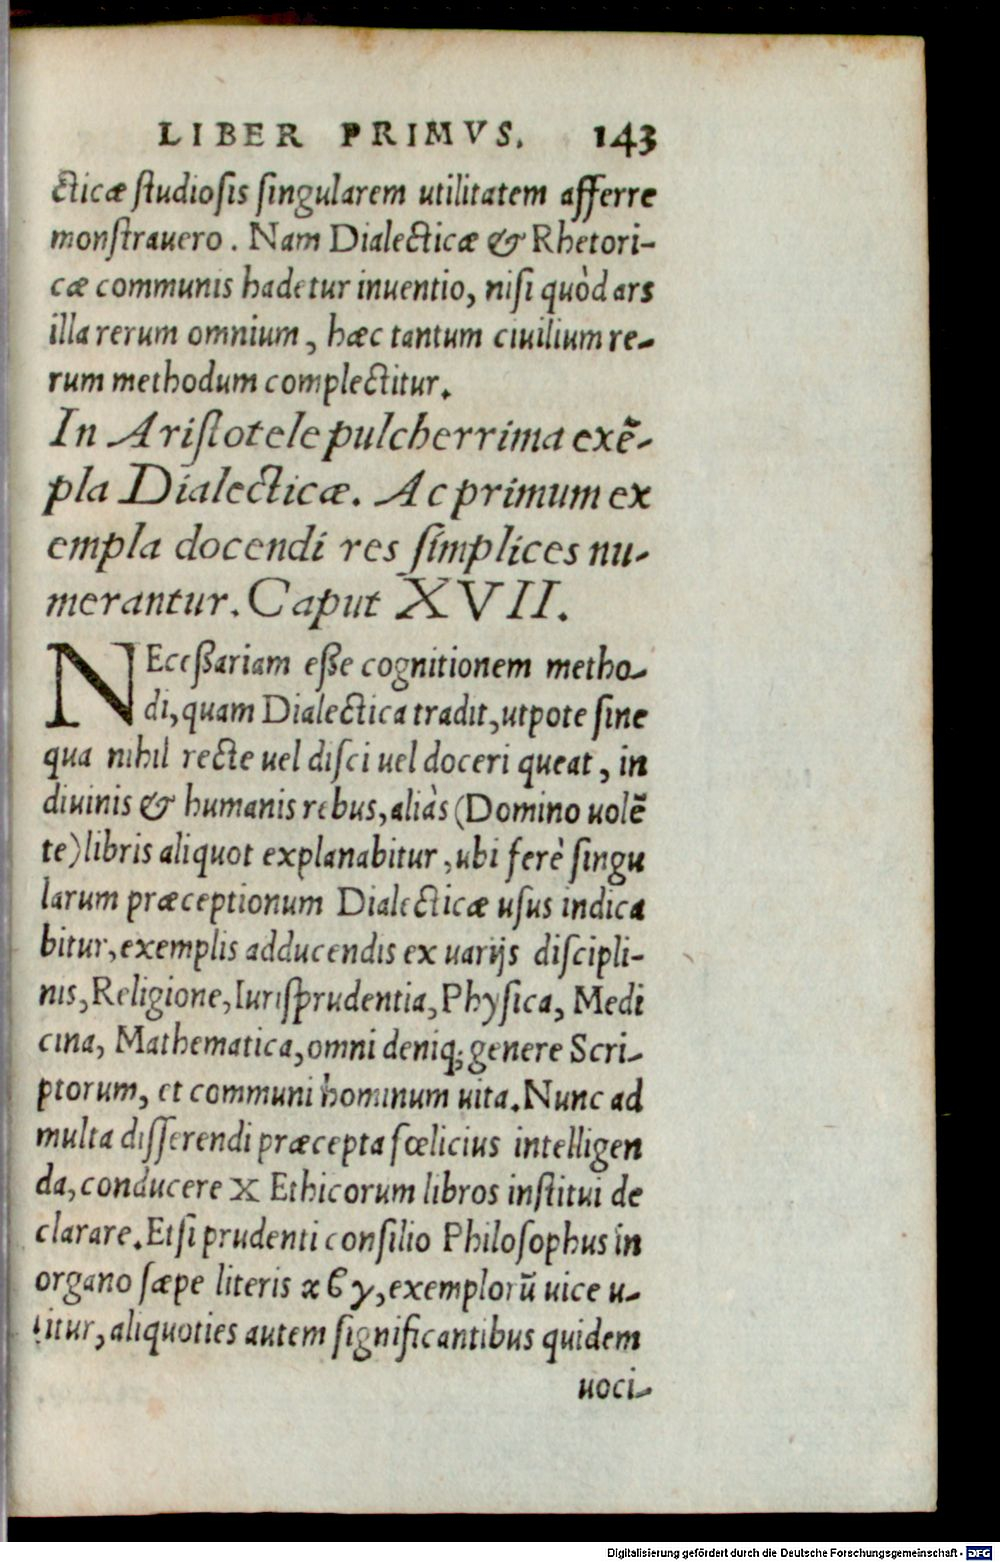 LIBER PRIMVS. 143
cticæ studiosis singularem utilitatem afferre
monstrauero. Nam Dialecticæ & Rhetori-
cæ communis hadetur inuentio, nisi quòd ars
illa rerum omnium, hæc tantum ciuilium re-
rum methodum complectitur.
In Aristotele pulcherrima exẽ-
pla Dialecticæ. Ac primum ex
empla docendi res simplices nu-
merantur. Caput XVII.
NEceßariam eße cognitionem metho-
di, quam Dialectica tradit, utpote sine
qua nihil recte uel disci uel doceri queat, in
diuinis & humanis rebus, aliàs (Domino uolẽ
te) libris aliquot explanabitur, ubi ferè singu
larum præceptionum Dialecticæ usus indica
bitur, exemplis adducendis ex uarijs discipli-
nis, Religione, Iurisprudentia, Physica, Medi
cina, Mathematica, omni deniq; genere Scri-
ptorum, et communi hominum uita. Nunc ad
multa disserendi præcepta fœlicius intelligen
da, conducere X Ethicorum libros institui de
clarare. Etsi prudenti consilio Philosophus in
organo sæpe literis α β γ, exemplorũ uice u-
titur, aliquoties autem significantibus quidem
uoci-
Digitalisierung gefördert durch die Deutsche Forschungsgemeinschaft - DFG